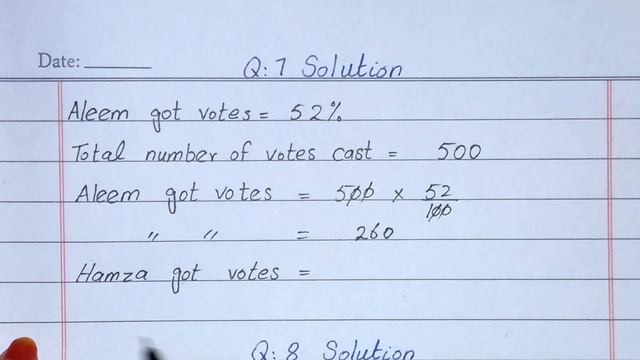 Date:
Q:7 Solution
Aleem got votes = 52%
Total number of votes cast = 500
Aleem got votes = 500 × 52/100
〃 〃 = 260
Hamza got votes =
Q:8 Solution